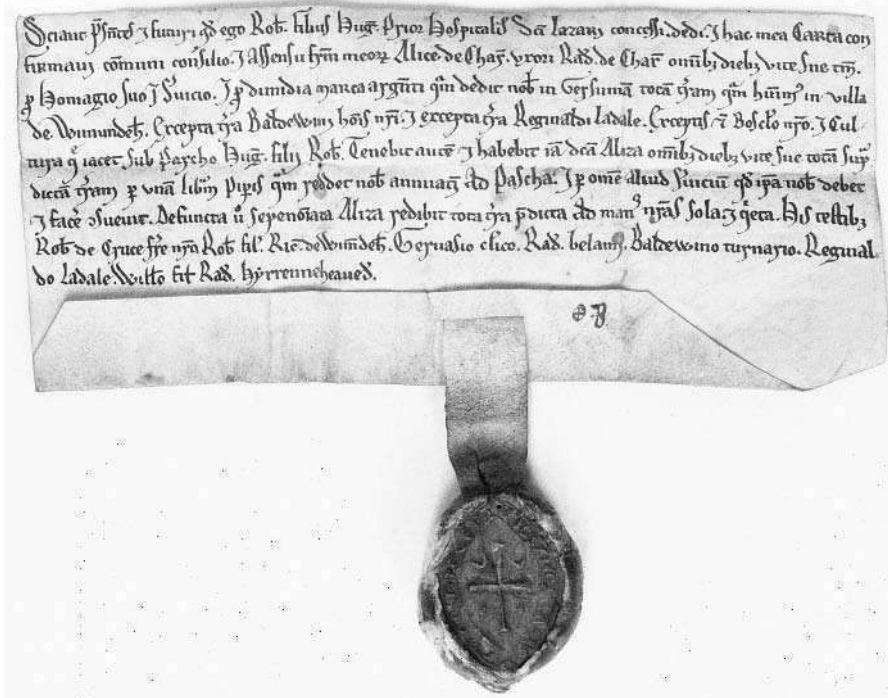 Sciant p̄sentes ⁊ futuri qd̄ ego Rob̄. filius Huḡ. Prior Hospitalis Sc̄i Lazari concessi. dedi. ⁊ hac mea Carta con
firmaui com̄uni consilio. ⁊ Assensu fr̄m meoꝝ Alice. de Char̄. vxori Rad̄. de Char̄ omnibꝫ diebꝫ vite sue tm̄.
ꝑ Homagio suo ⁊ S̄uicio. ⁊ ꝑ dimidia marca argēti qm̄ dedit nob̄ in Gersumā totā t̄ram qm̄ hūim̄ in villa
de Wimundeh̄. Excepta t̄ra Baldewini hōis nr̄i. ⁊ excepta t̄ra Reginaldi ladale. Exceptis ⁊ Boscło nr̄o. ⁊ Cul
tura q̄ iacet sub Parcho Huḡ. filij Rob̄. Tenebit autē ⁊ habebit iā dc̄a Aliza omnibꝫ diebꝫ vite sue totā sup̄
dictā t̄ram ꝑ vnā libr̄m Piꝑis qm̄ reddet nob̄ annuatī Ad Pascha. ⁊ ꝑ omē aliud S̄uiciū qd̄ ip̄a nob̄ debet
⁊ facē ꝯsueuit. Defuncta ū sepenoiata Aliza redibit tota t̄ra p̄dicta Ad man᷒ nr̄as sola ⁊ q̄eta. His testibꝫ
Rob̄ de Cruce fr̄e nr̄o Rob̄ fil̄. Ric̄. de Wim̄deh̄. Geruasio cl̄ico. Rad̄. belam̄. Baldewino turnario. Reginal
do ladale. Willo fil̄ Rad̄. Hyrenneheaued̄.